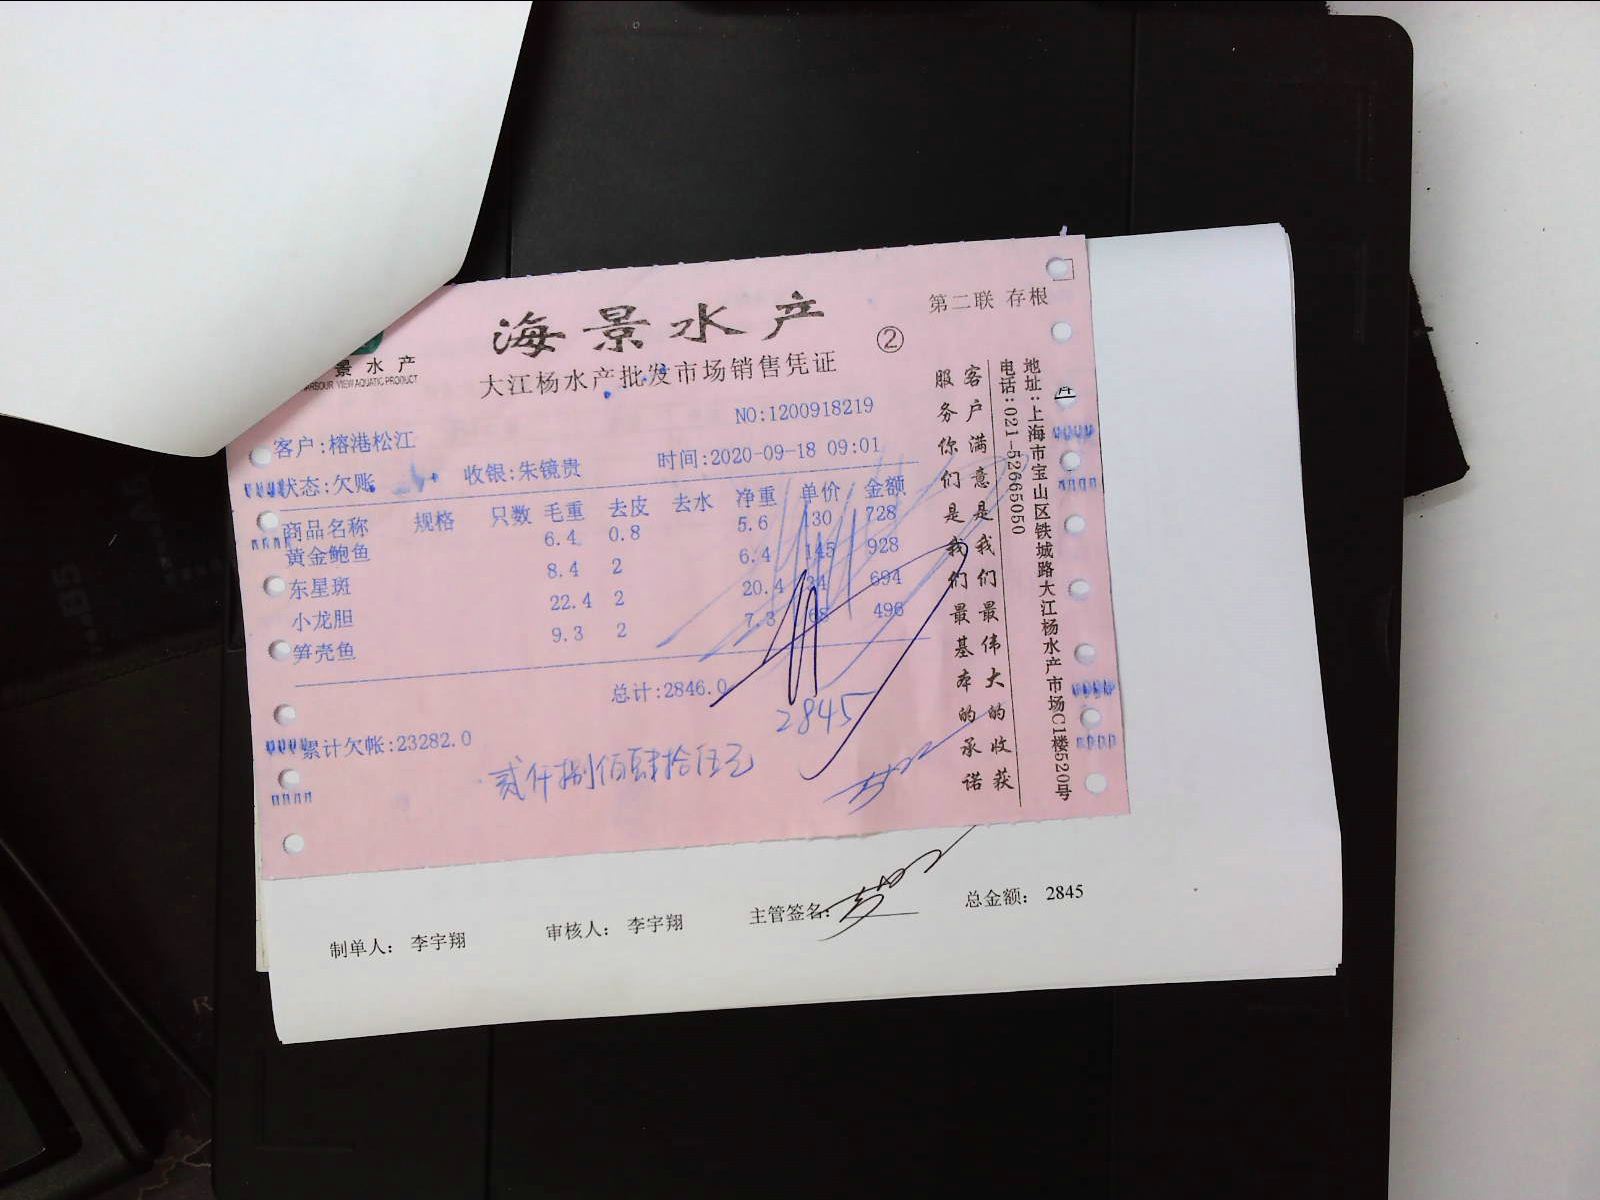 海景水产
第二联 存根
②
景水产
ARBOUR VIEW AQUATIC PRODUCT
大江杨水产批发市场销售凭证
NO:1200918219
客户:榕港松江
时间:2020-09-18 09:01
状态:欠账 收银:朱镜贵
商品名称 规格 只数 毛重 去皮 去水 净重 单价 金额
黄金鲍鱼 6.4 0.8 5.6 130 728
东星斑 8.4 2 6.4 145 928
小龙胆 22.4 2 20.4 34 694
笋壳鱼 9.3 2 7.3 68 496
总计:2846.0
2845
累计欠帐:23282.0
贰仟捌佰肆拾伍元
客户满意是我们最伟大的收获
服务你们是我们最基本的承诺
地址:上海市宝山区铁城路大江杨水产市场C1楼520号
电话:021-52665050
制单人: 李宇翔 审核人: 李宇翔 主管签名: 总金额: 2845